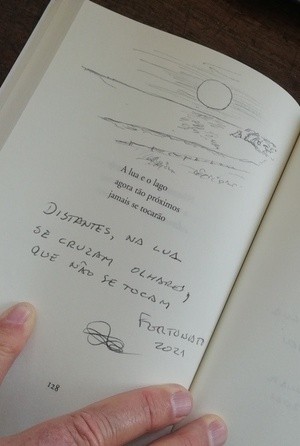 A lua e o lago
agora tão próximos
jamais se tocarão
DISTANTES, NA LUA
SE CRUZAM OLHARES,
QUE NÃO SE TOCAM
FORTUNATI
2021
128